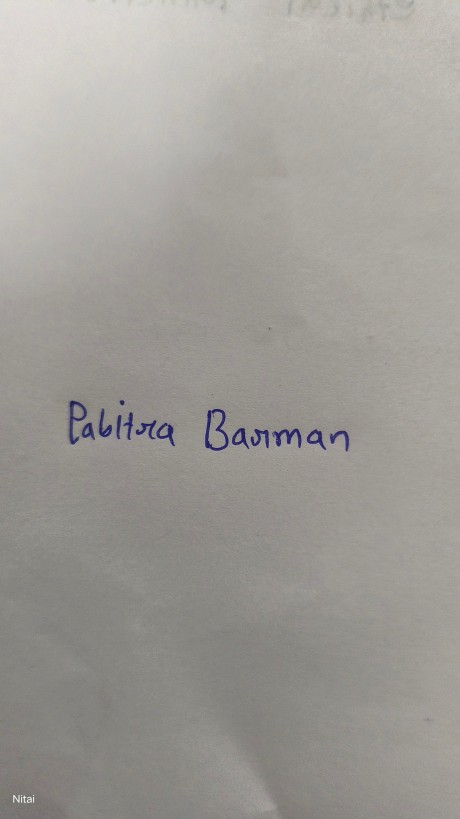 Pabitra Barman
Nitai